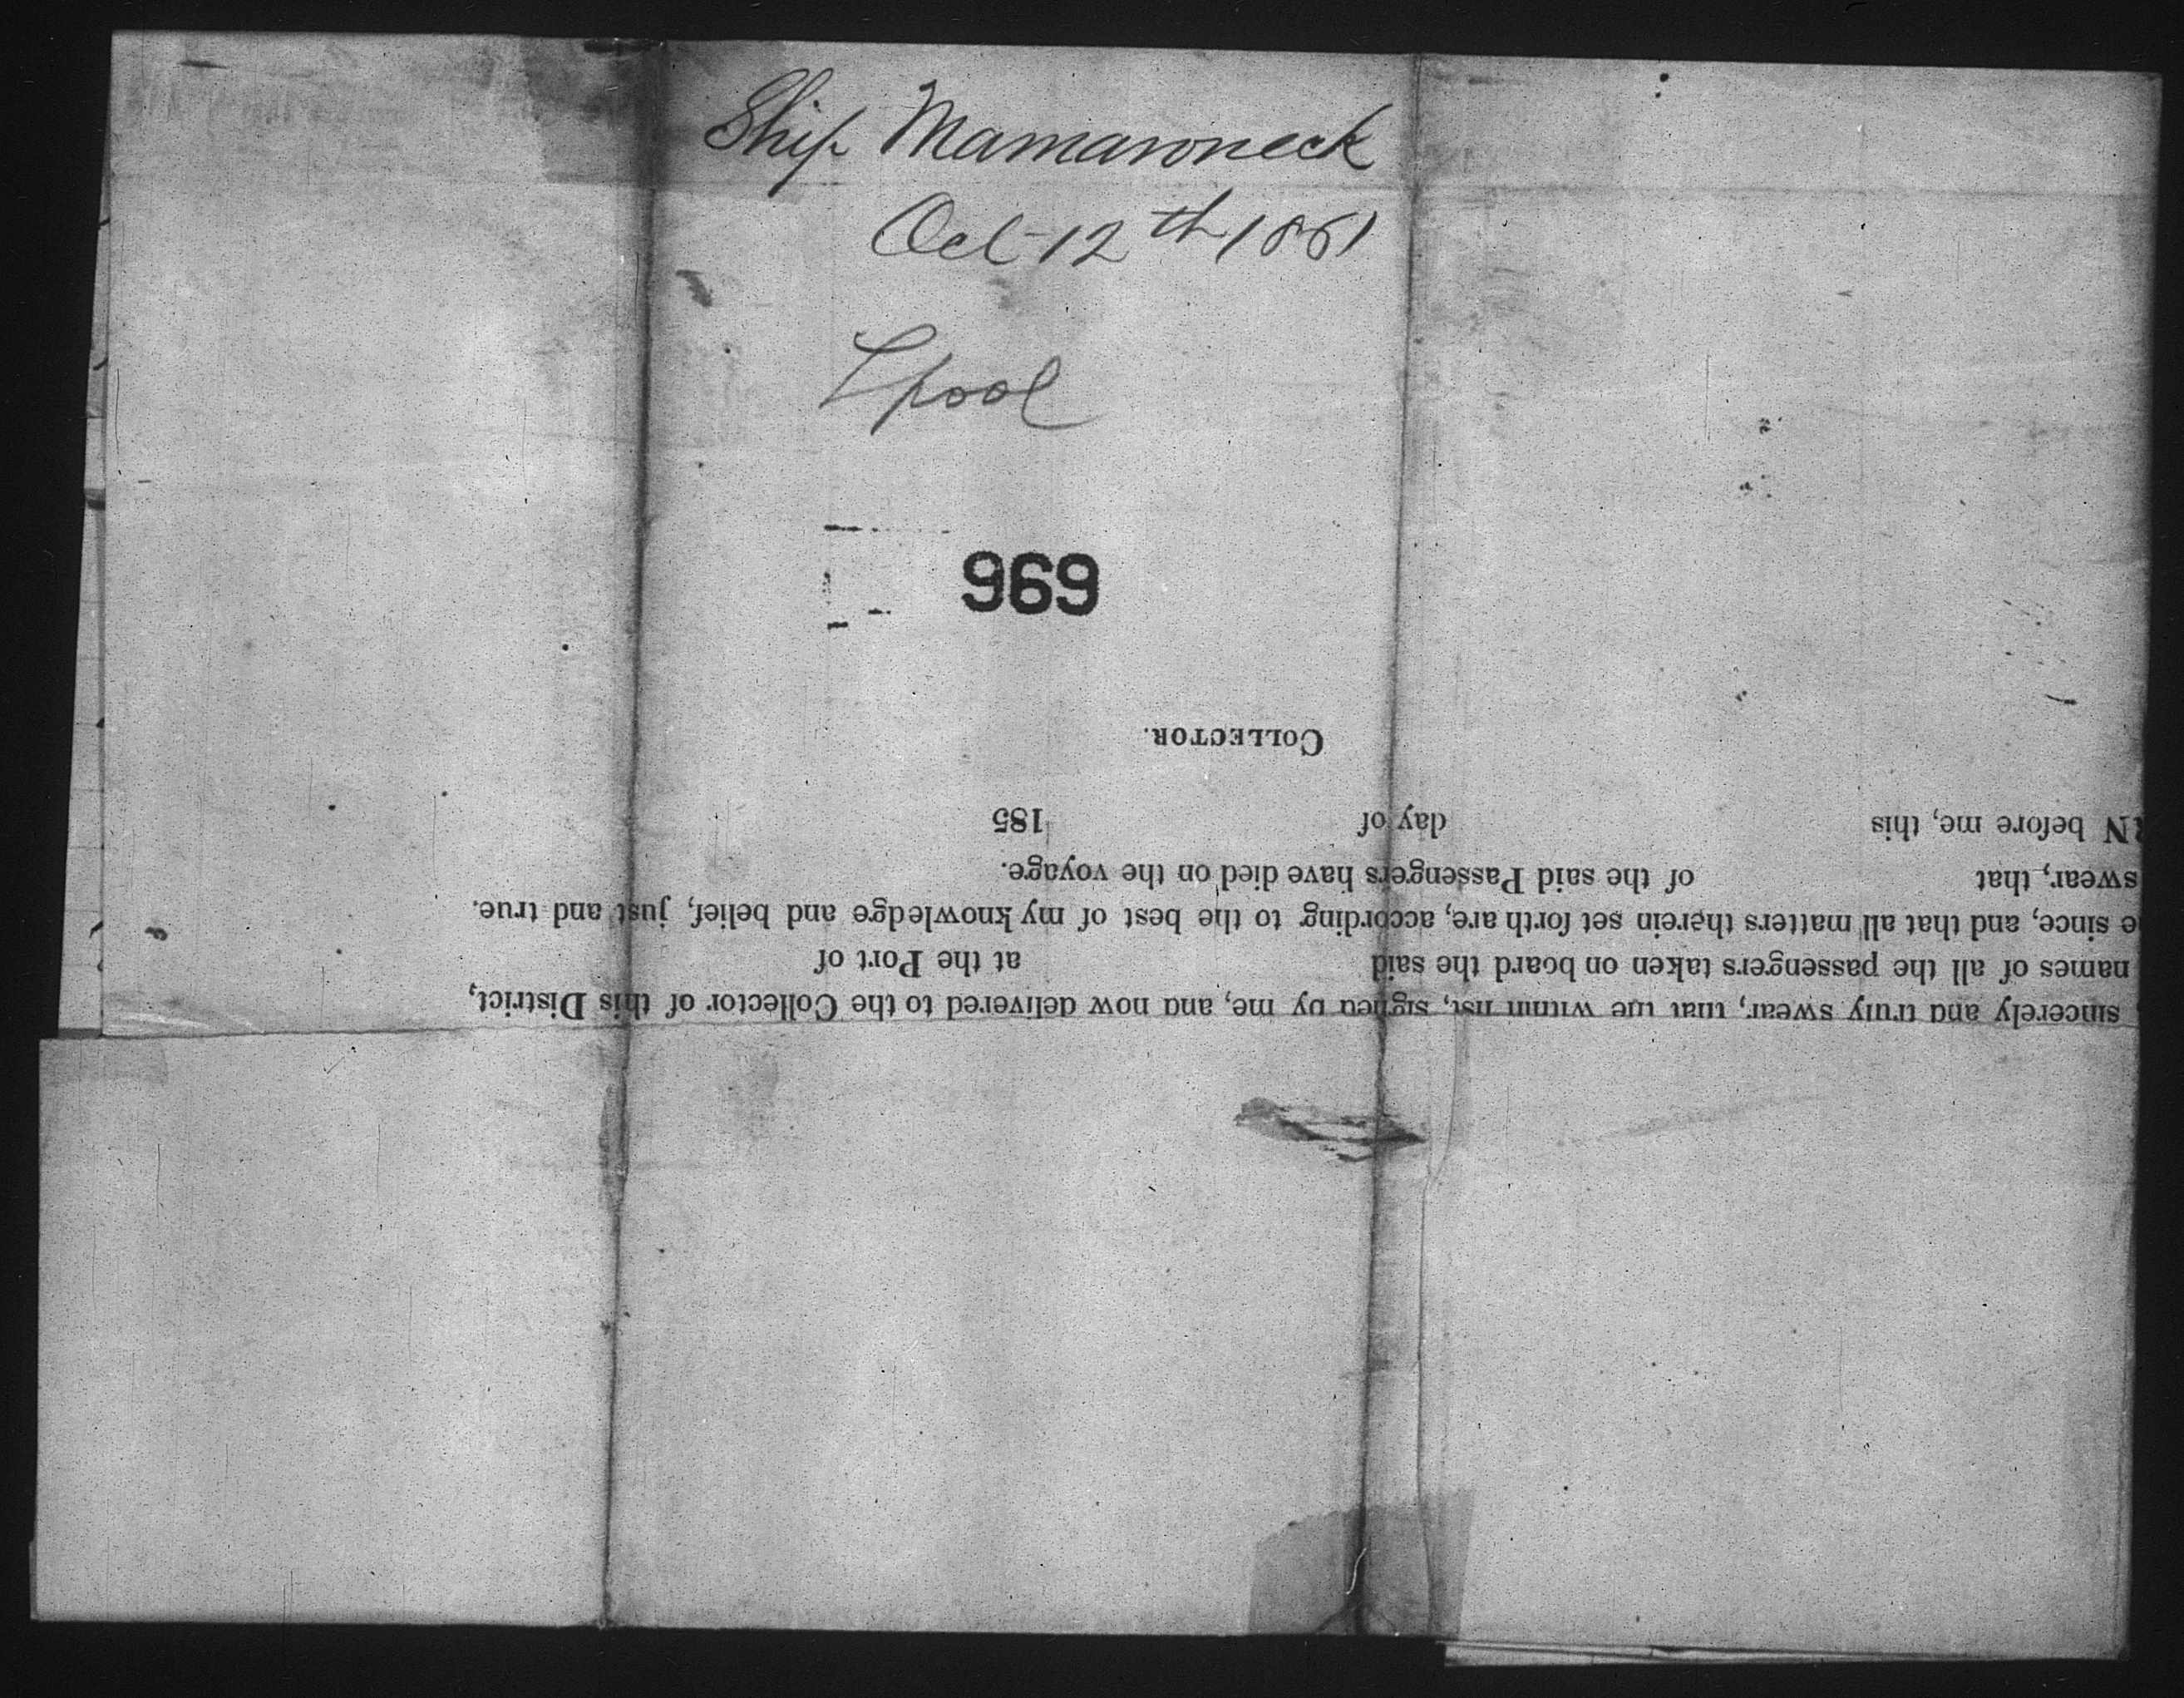 Ship Mamaroneck
Oct 12th 1861
Lpool
969
sincerely and truly swear, that the within list, signed by me, and now delivered to the Collector of this District,
names of all the passengers taken on board the said at the Port of
e since, and that all matters therein set forth are, according to the best of my knowledge and belief, just and true.
swear, that of the said Passengers have died on the voyage.
RN before me, this day of 185
COLLECTOR.